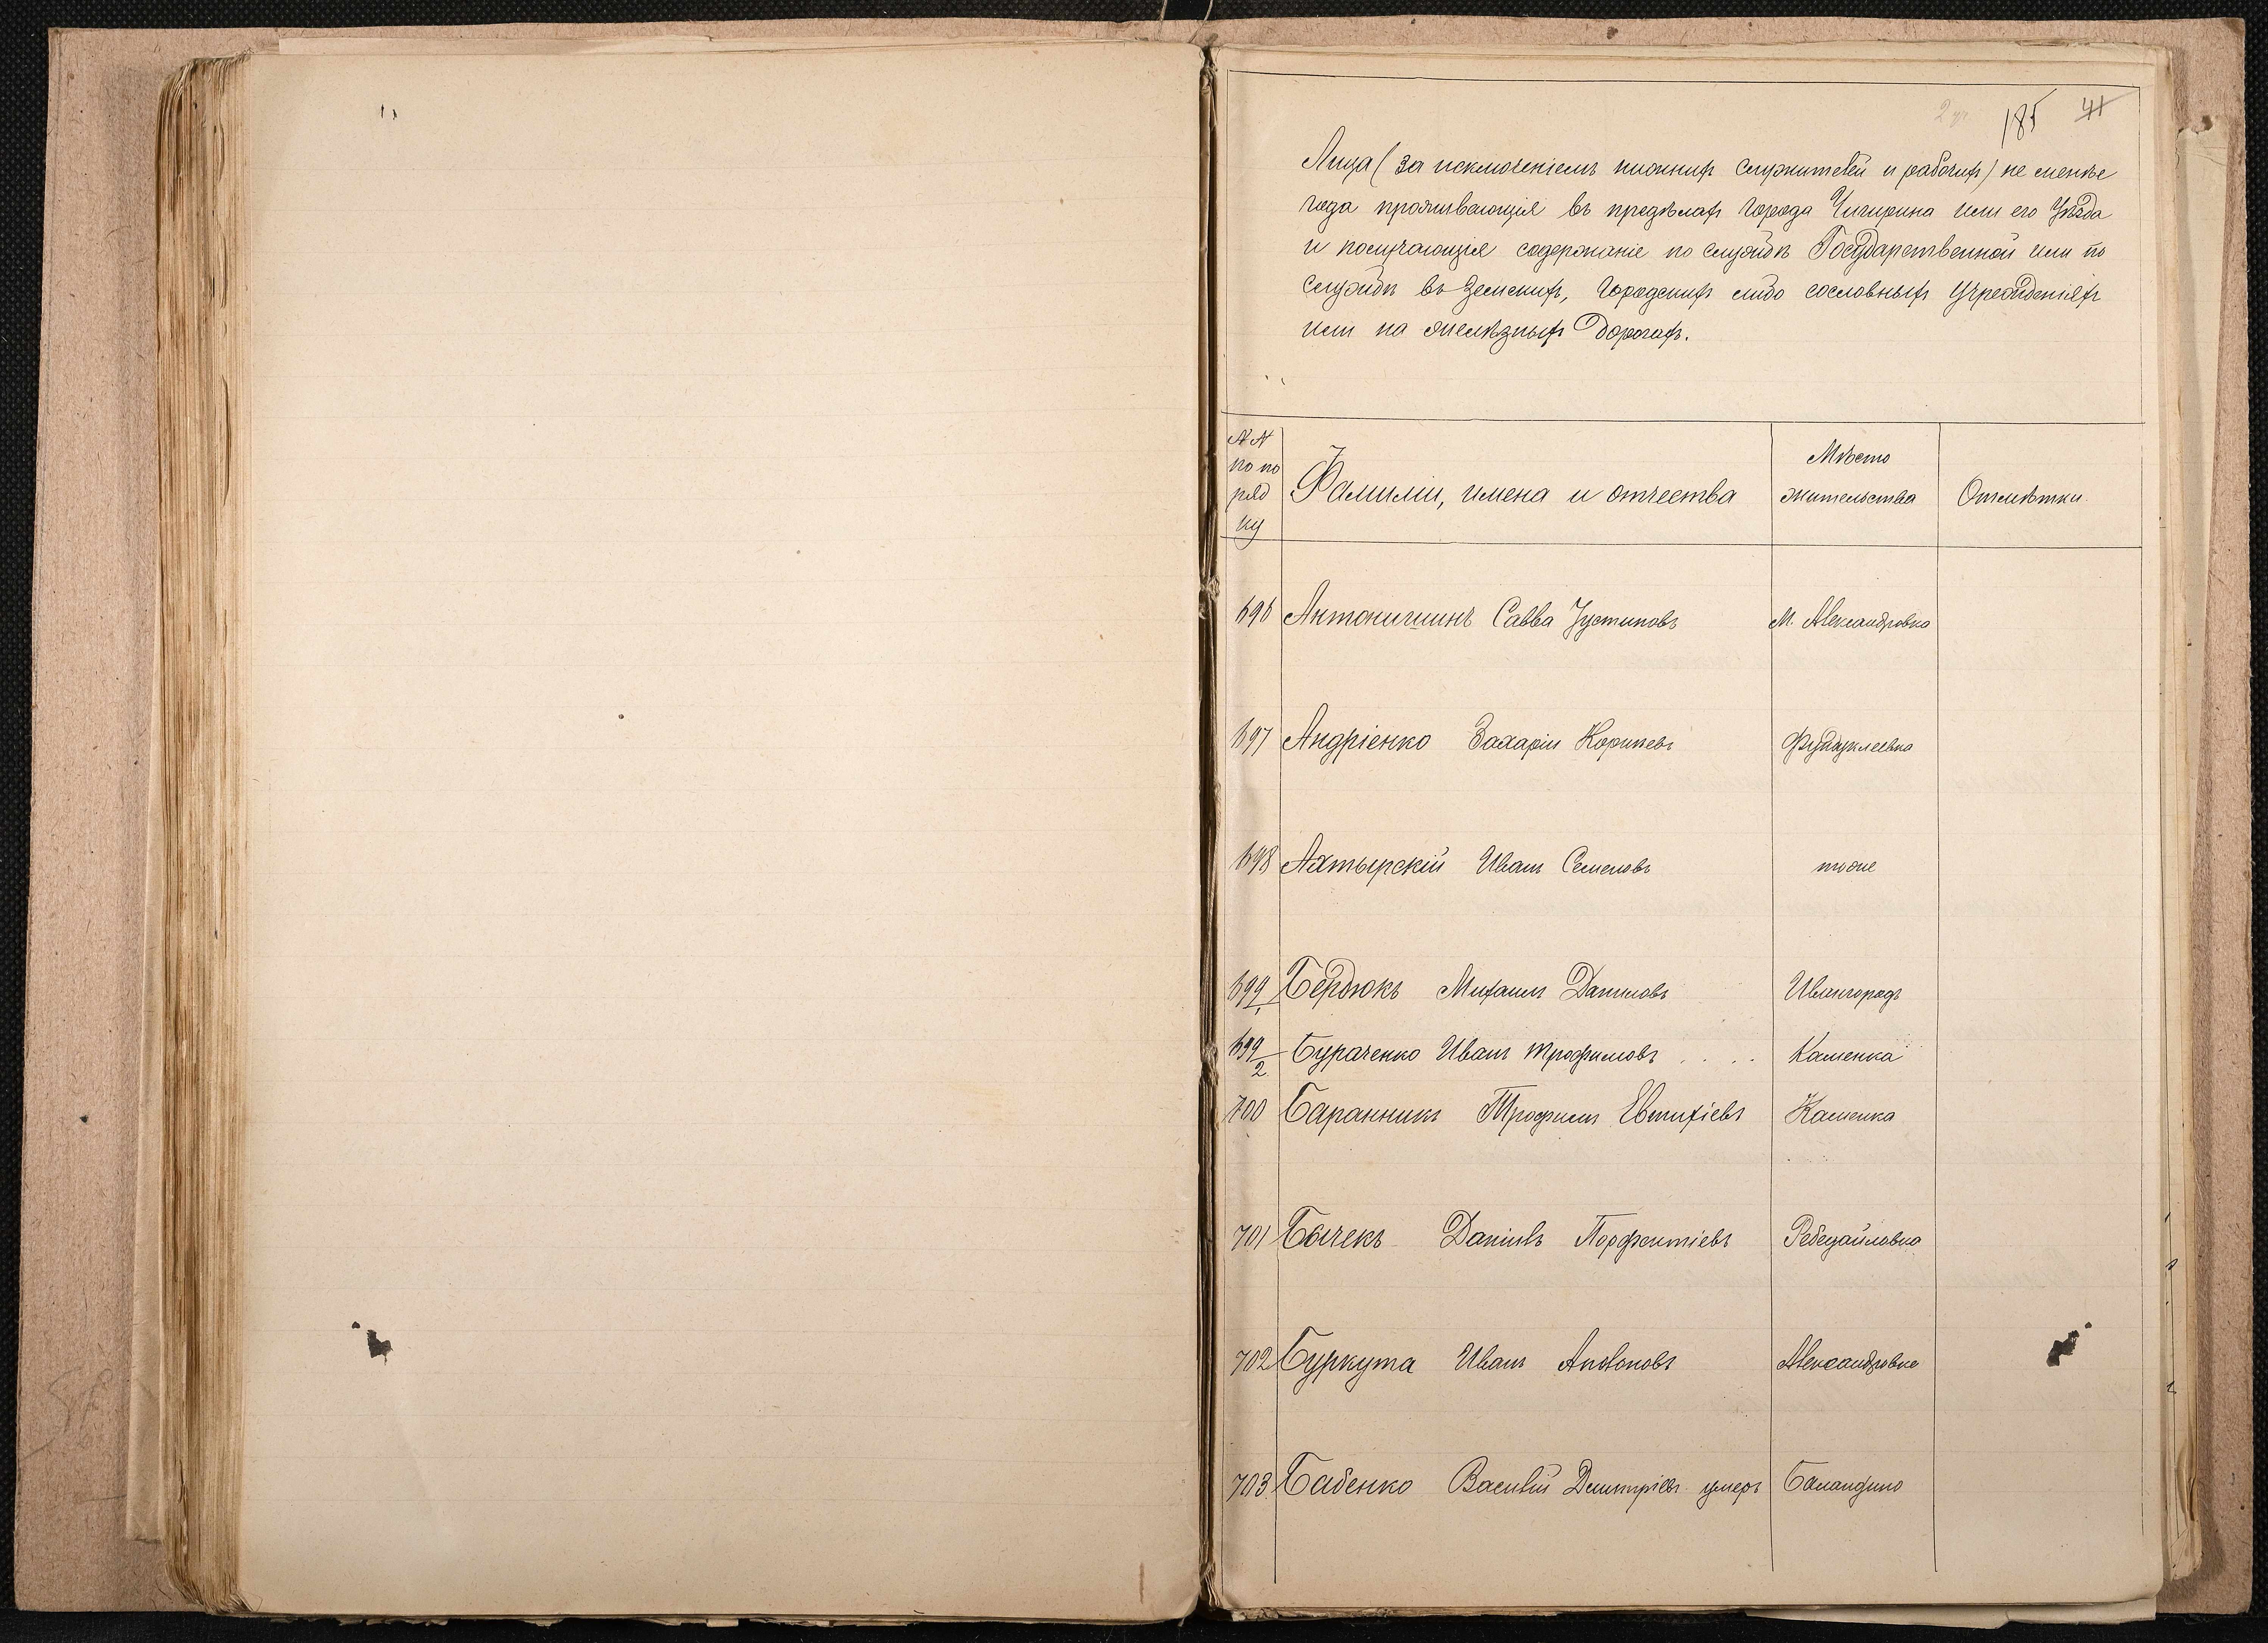 185 41
Лица (за исключеніемъ нижнихъ служителей и рабочихъ) не менѣе
года проживающія въ предѣлахъ города Чигирина или его уѣзда
и получающія содержаніе по службѣ Государственной или по
службѣ въ Земскихъ, Городскихъ либо сословныхъ учрежденіяхъ
или на желѣзныхъ дорогахъ.
№№ по порядку Фамиліи, имена и отчества Мѣсто жительства Отмѣтки
696 Антонишинъ Савва Іустиновъ М. Александровка
697 Андріенко Захарій Корнѣевъ Фундуклеевка
698 Ахтырскій Иванъ Семеновъ тоже
699/1 Бердюкъ Михаилъ Даниловъ Ивангородъ
699/2 Бураченко Иванъ Трофимовъ . . . . Каменка
700 Баранникъ Трофимъ Евтихіевъ Каменка
701 Бычекъ Даніилъ Порфентіевъ Ребедайловка
702 Буркута Иванъ Антоновъ Александровка
703 Бабенко Василій Дмитріевъ умеръ Баландино